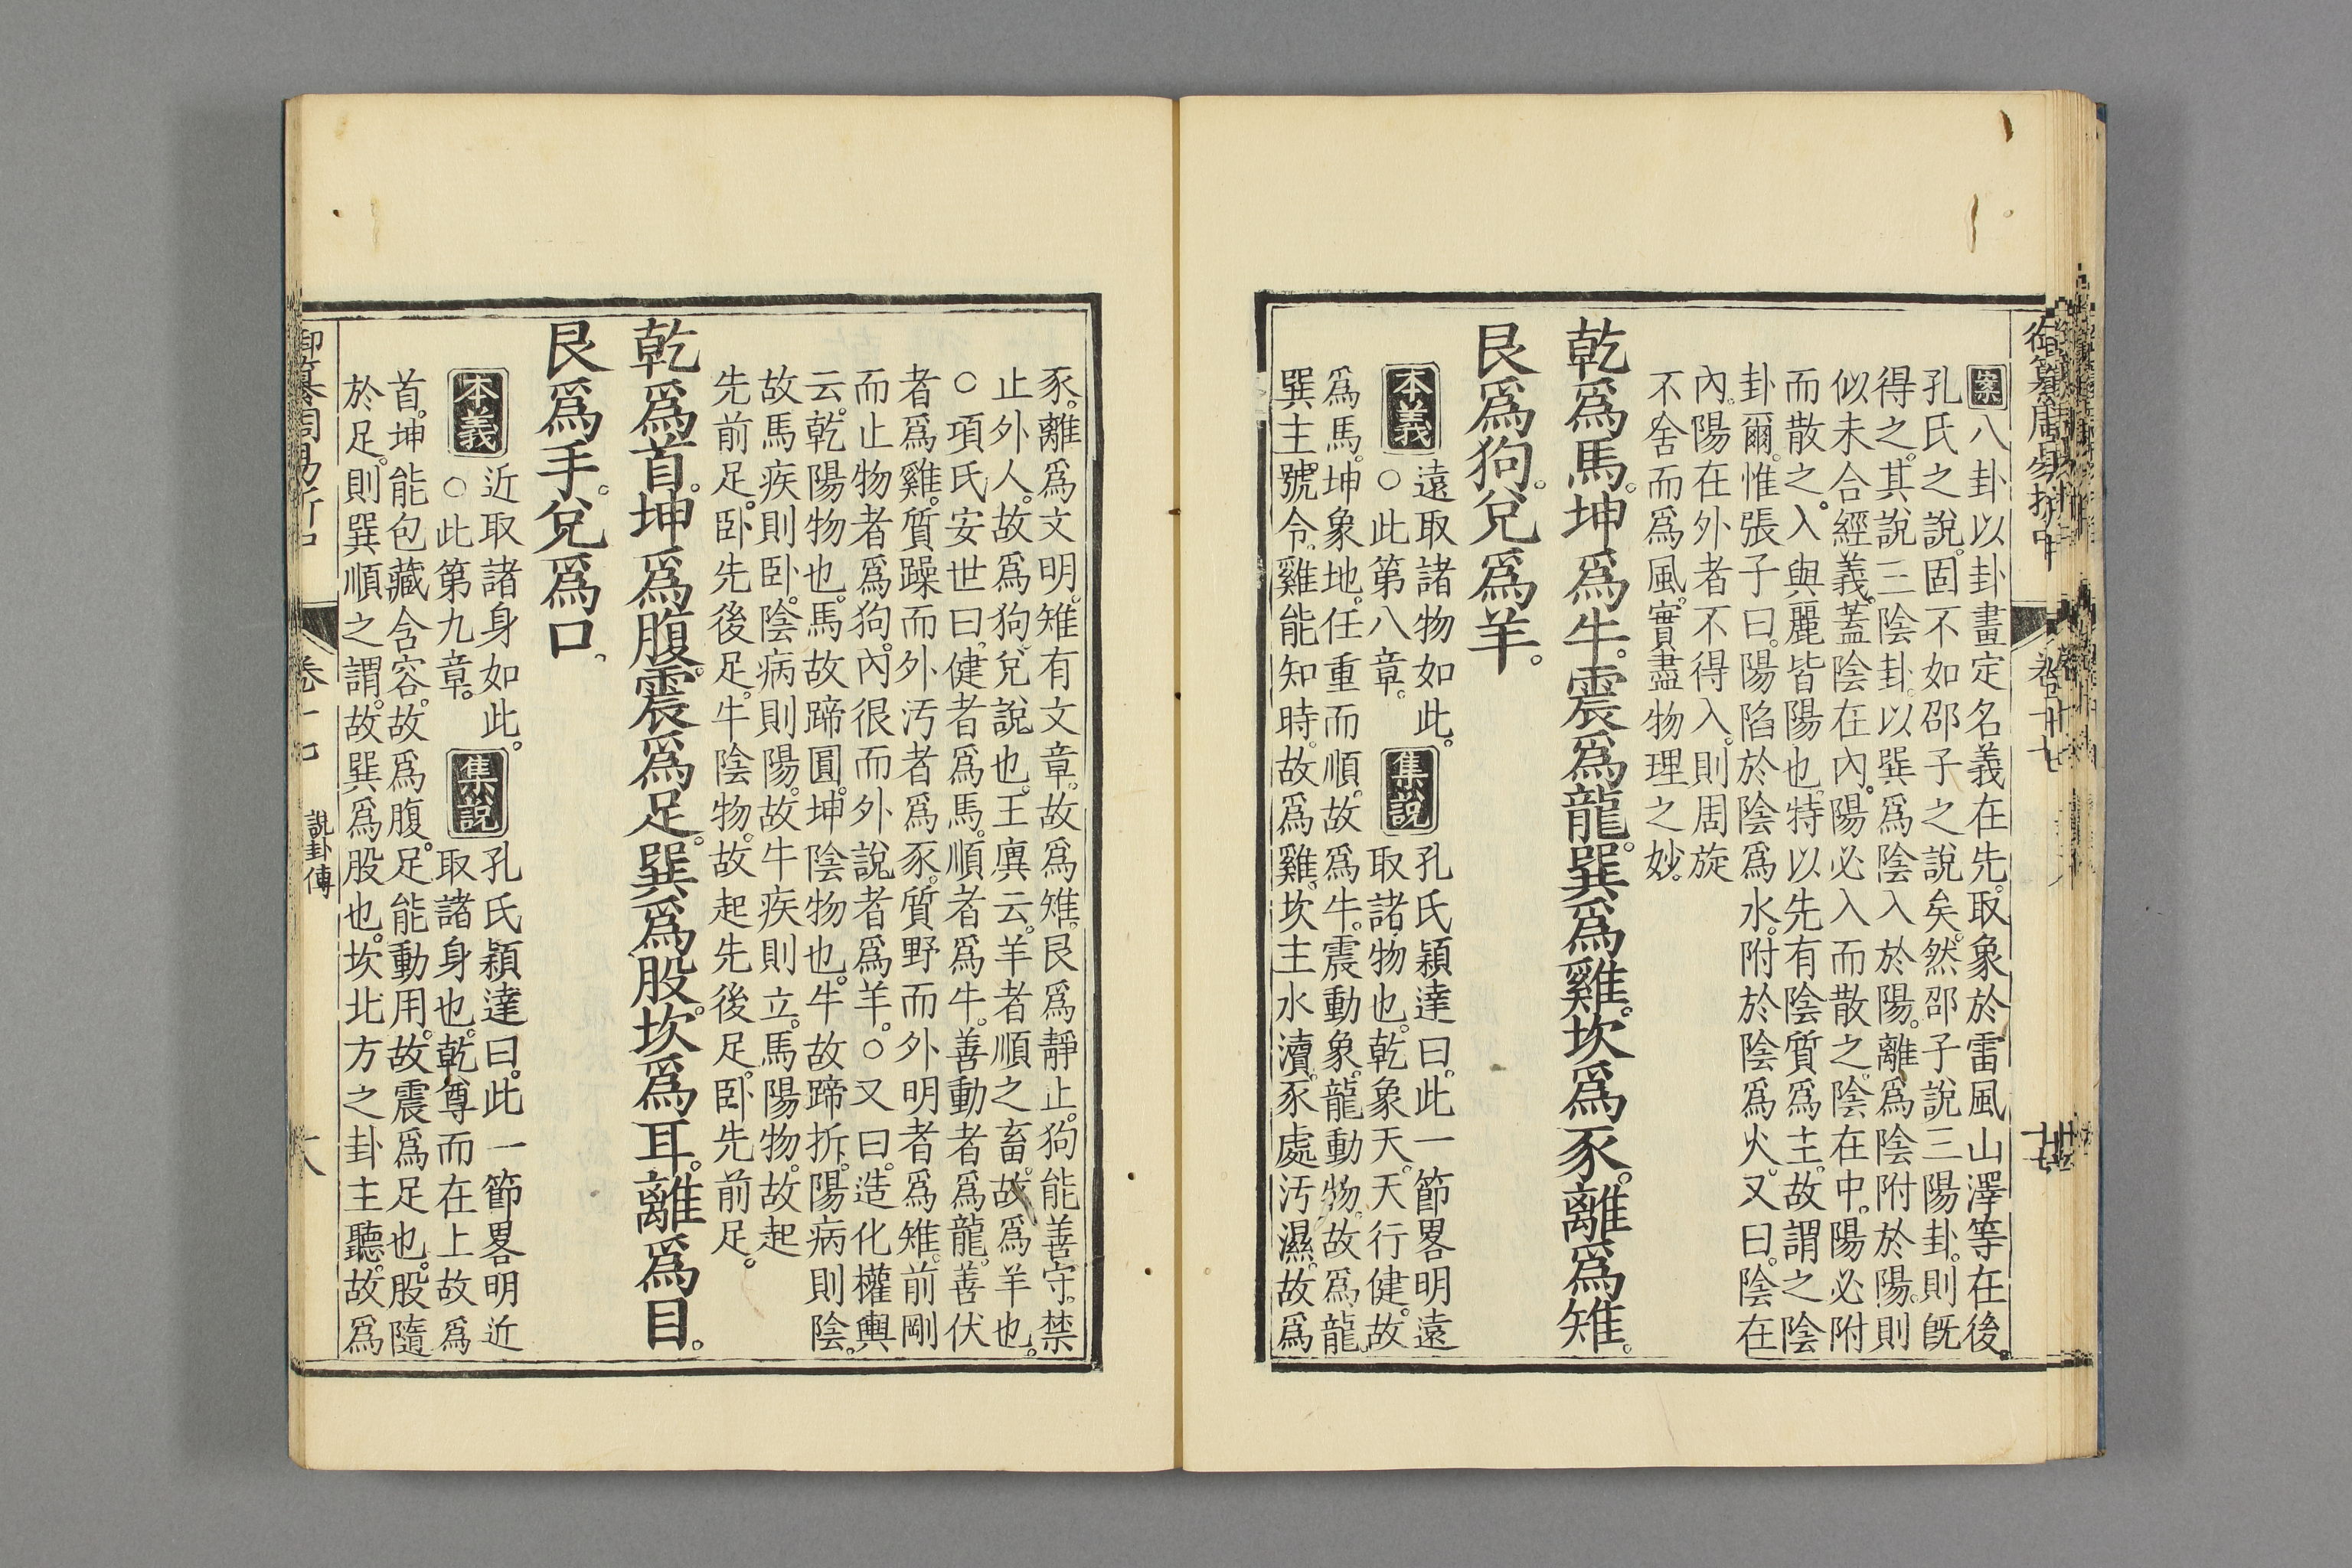 御纂周易折中
案八卦以卦畫定名義在先。取象於雷風山澤等在後。
孔氏之說。固不如邵子之說矣。然邵子說三陽卦。則旣
得之。其說三陰卦。以巽爲陰入於陽。離爲陰附於陽。則
似未合經義。蓋陰在內。陽必入而散之。陰在中。陽必附
而散之。入與麗皆陽也。特以先有陰質爲主。故謂之陰
卦爾。惟張子曰。陽陷於陰爲水。附於陰爲火。又曰。陰在
內。陽在外者不得入。則周旋
不舍而爲風。實盡物理之妙。
乾爲馬。坤爲牛。震爲龍。巽爲雞。坎爲豕。離爲雉。
艮爲狗。兌爲羊。
本義 遠取諸物如此。 集說 孔氏穎達曰。此一節畧明遠
○此第八章。 取諸物也。乾象天。天行健。故
爲馬。坤象地。任重而順。故爲牛。震動象。龍動物。故爲龍
巽主號令。雞能知時。故爲雞。坎主水瀆。豕處汚濕。故爲
豕。離爲文明。雉有文章。故爲雉。艮爲靜止。狗能善守。禁
止外人。故爲狗。兌說也。王廙云。羊者順之畜。故爲羊也。
○項氏安世曰。健者爲馬。順者爲牛。善動者爲龍。善伏
者爲雞。質躁而外汚者爲豕。質野而外明者爲雉。前剛
而止物者爲狗。內很而外說者爲羊。○又曰。造化權輿
云。乾陽物也。馬故蹄圓。坤陰物也。牛故蹄拆。陽病則陰。
故馬疾則卧。陰病則陽。故牛疾則立。馬陽物。故起
先前足。卧先後足。牛陰物。故起先後足。卧先前足。
乾爲首。坤爲腹。震爲足。巽爲股。坎爲耳。離爲目。
艮爲手。兌爲口。
本義 近取諸身如此。 集說 孔氏穎達曰。此一節畧明近
○此第九章。 取諸身也。乾尊而在上。故爲
首。坤能包藏含容。故爲腹。足能動用。故震爲足也。股隨
於足。則巽順之謂。故巽爲股也。坎北方之卦主聽。故爲
御纂周易折中 卷十七 說卦傳